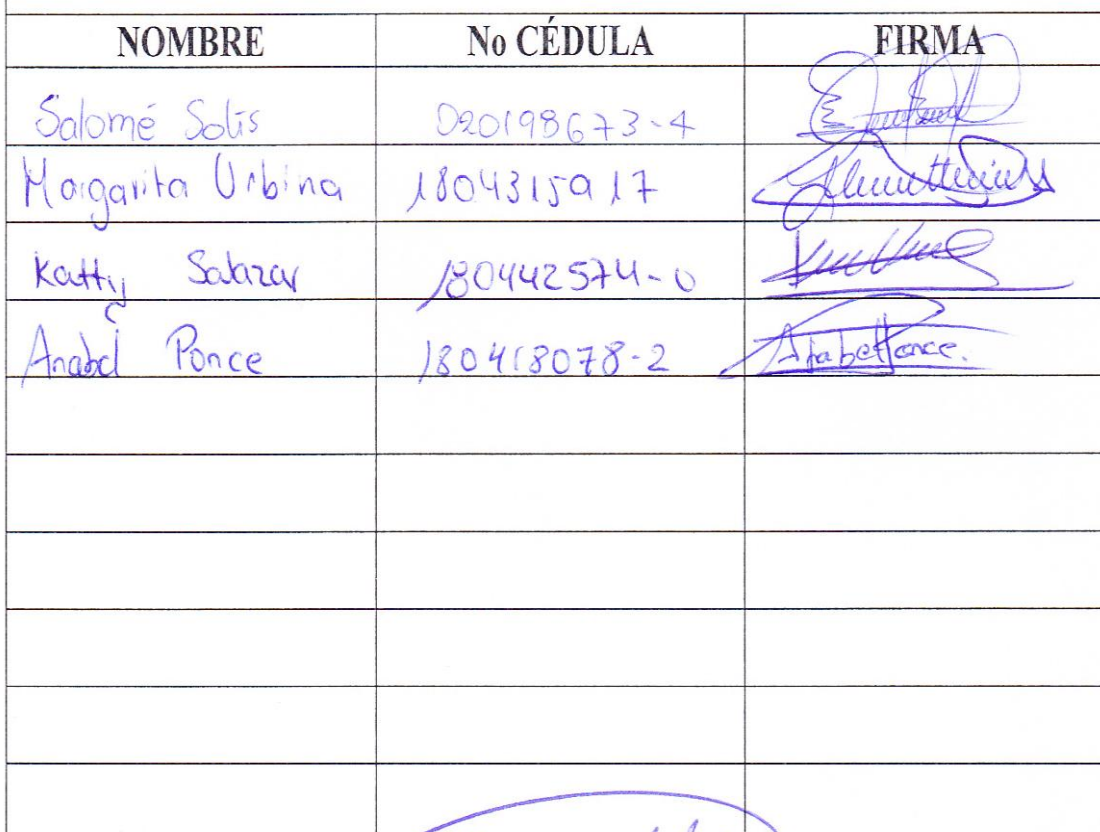 NOMBRE No CÉDULA FIRMA
Salomé Solis 020198673-4
Margarita Urbina 1804315917
Katty Salazar 180442574-0
Anabel Ponce 180418078-2 Anabel Ponce.